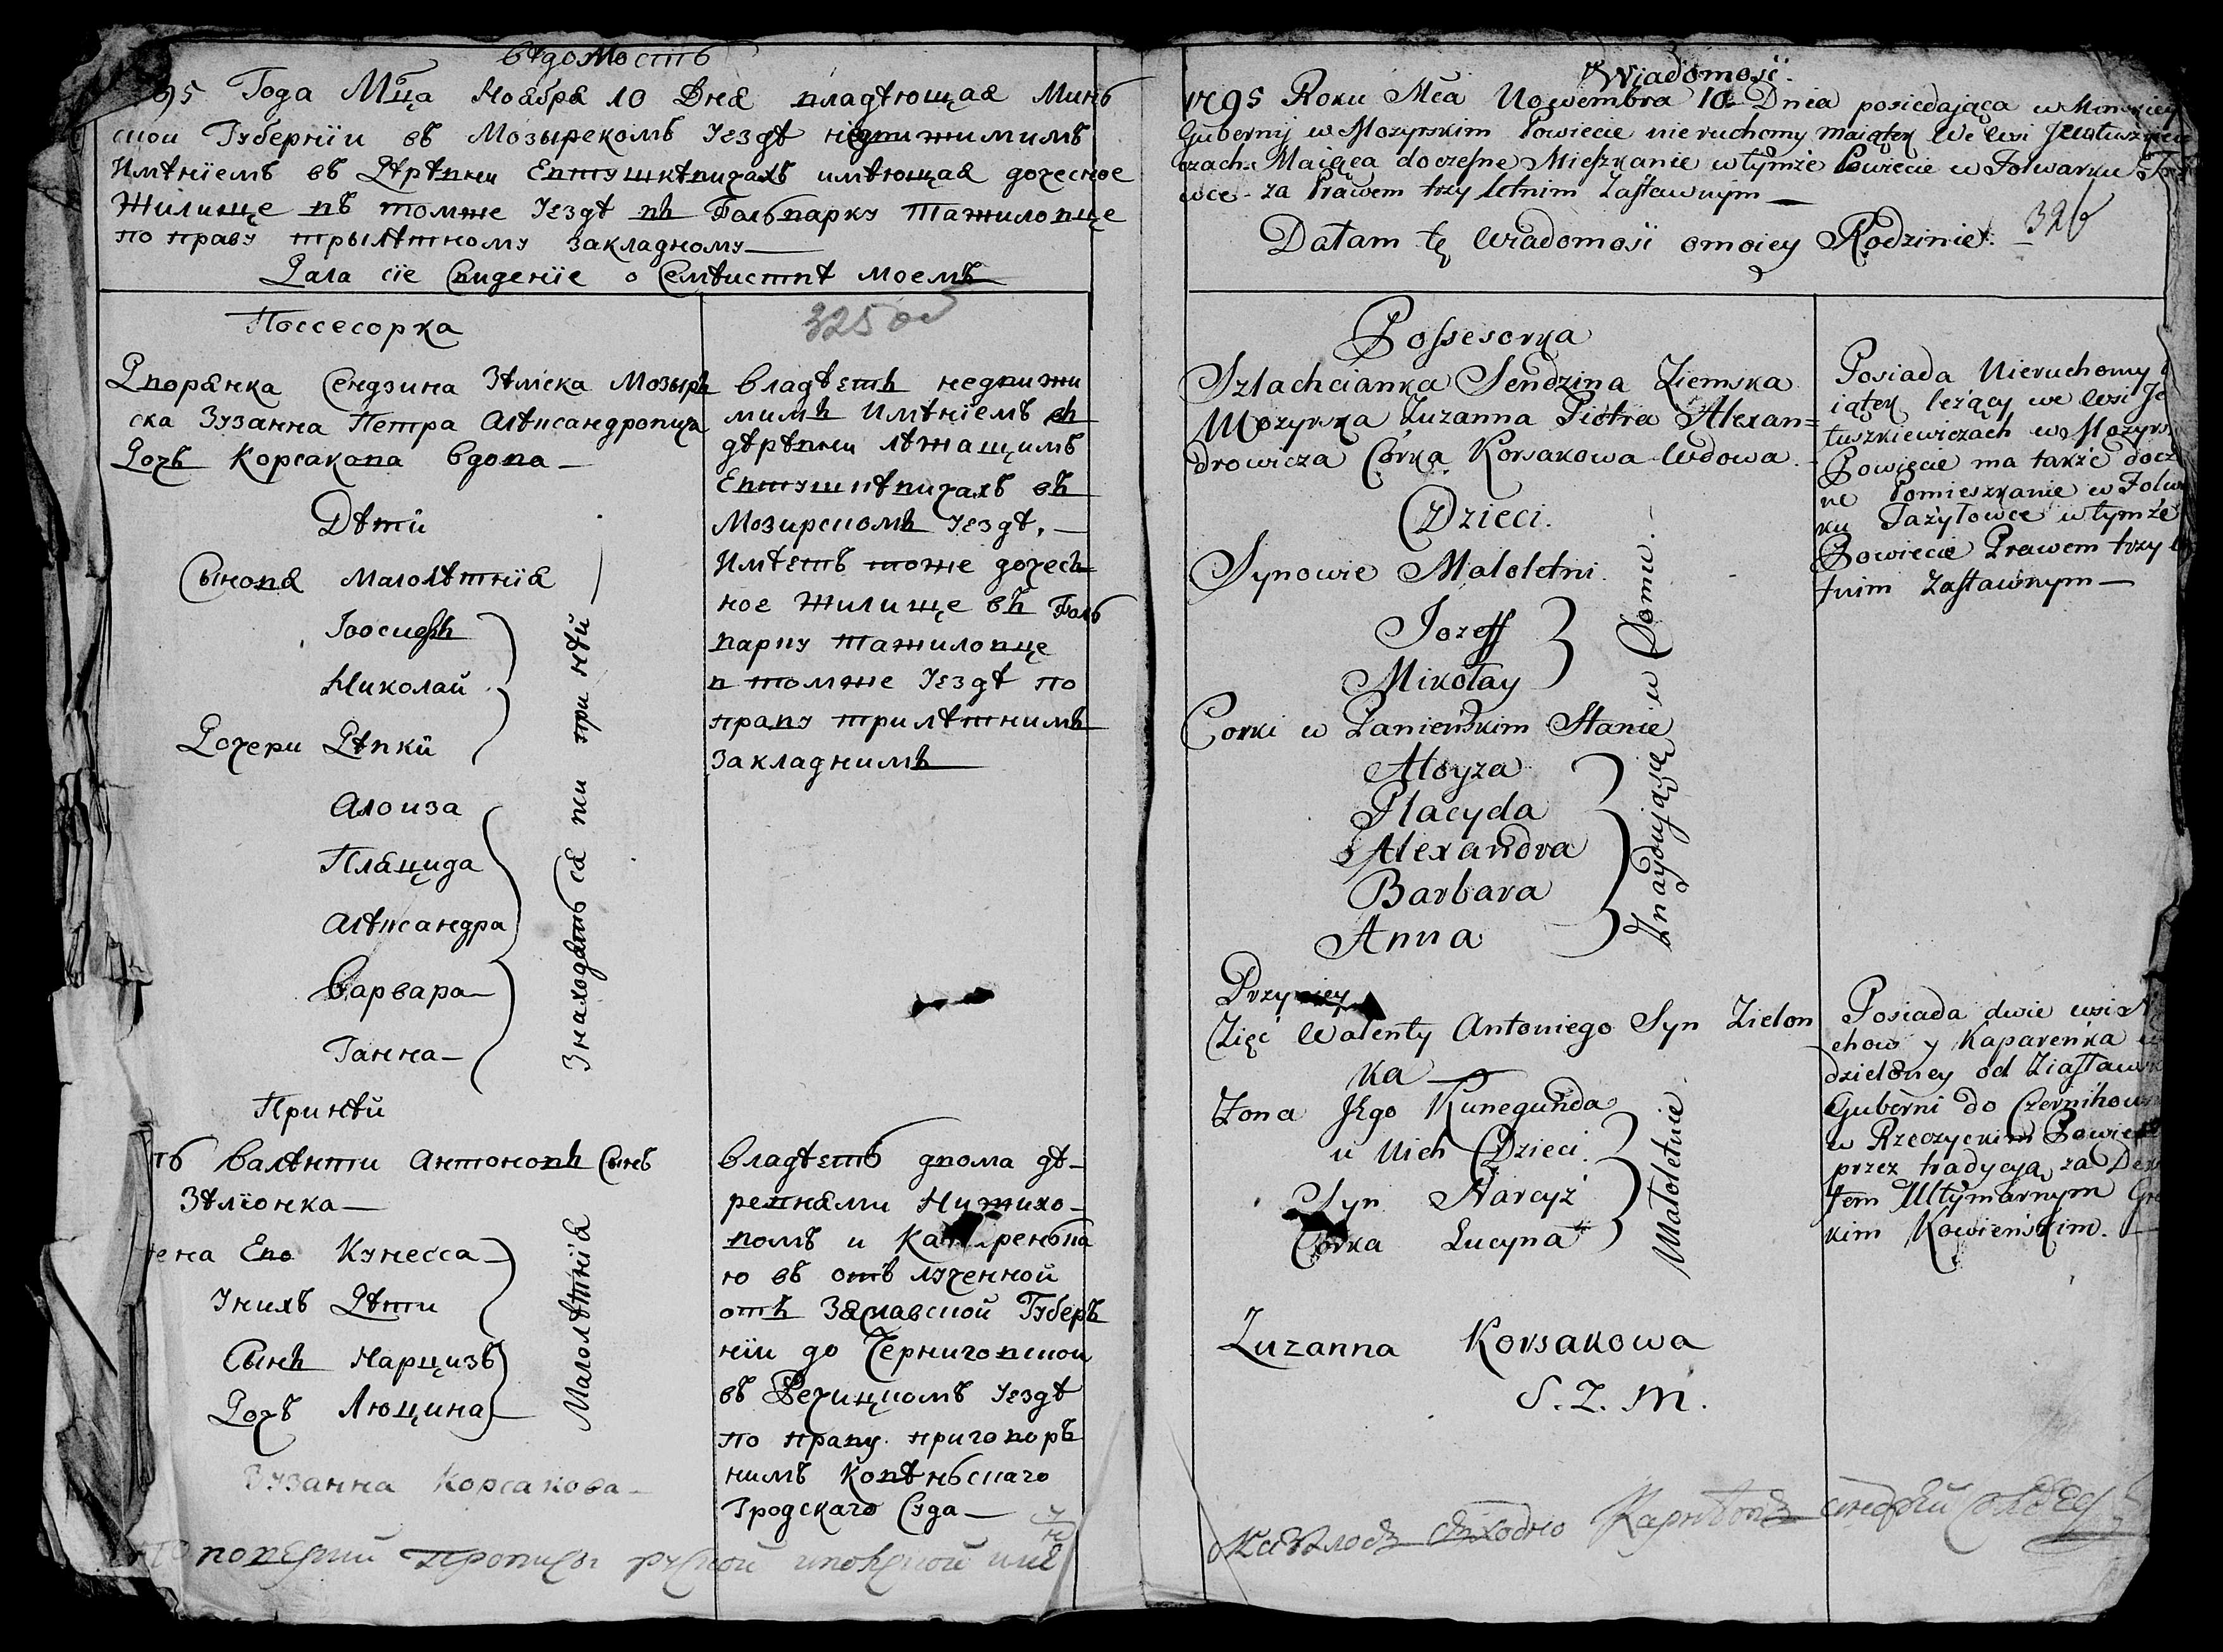 вѣдомость
95 Года Мца Ноября 10 Дня владѣющая Минь
ской Губернїи въ Мозырскомъ уездѣ недвижимимъ
Имѣнїемъ въ Дѣрѣвни Евтушкѣвичахъ имѣющая дочесное
Жилище въ томже уездѣ въ Фальварку Тажиловце
по праву трылѣтному закладному —
Дала сїе Свиденїе о Семѣистве моемъ
Поссесорка
325 об
Дворянка Сендзина Зѣмска Мозырь
ска Зузанна Петра Алѣксандровича
Дочь Корсакова вдова —
Дѣти
Сыновя Малолѣтнїя
Іоосифъ
Николай
Дочери Дѣвки
Алоиза
Плацида
Алѣксандра
Варвара —
Ганна —
Знаходятся пи при нѣй —
При нѣй
ть Валѣнти Антоновъ Сынъ
Зѣлїонка —
ена Ево Кунесса —
У нихъ Дѣти
Сынъ Нарцизъ
Дочъ Люцина —
Малолѣтнїя
Зузанна Корсакова —
Владѣетъ недвижи
мимъ Имѣнїемъ въ
дѣрѣвни лѣжащимъ
Евтушкѣвичахъ въ
Мозирскомъ уездѣ. —
Имѣетъ тоже дочесъ
ное Жилище въ Фаль
варку Тажиловце
в томже уездѣ по
праву трилѣтнимъ
закладнимъ
Владѣетъ двома дѣ-
ревнями Нижихо-
вомъ и Ка ренька
ю въ отълученной
отъ Заславской Губеръ
нїи до Черниговской
въ Речицкомъ уездѣ
по праву приговоръ
нимъ Ковѣньскаго
Гродскаго Суда —
Wiadomosć.
1795 Roku Mca Nowembra 10. Dnia posiedająca w Minskiey
Gubernij w Mozyrskim Powiecie nieruchomy maiątek We wsi Jewtuszkiewi
czach. Maiąca doczesne Mieszkanie w tymże Powiecie w Folwarku
wce - za Prawem trzy letnim Zastawnym —
326
Datam tę Wiadomosć o moiey Rodzinie.
Possesorka
Szlachcianka Sendzina Ziemska
Mozyrska Zuzanna Piotra Alexan=
drowicza Córka Korsakowa Wdowa.
Dzieci.
Synowie Maloletni.
Jozeff
Mikołay
Corki w Panieńskim Stanie
Aloyza
Placyda
Alexandra
Barbara
Anna
Znaydują się w Domu. —
Przy niey
Zięć Walenty Antoniego Syn Zielon
ka —
Zona Jego Kunegunda
u Nich Dzieci.
Syn Narcyż
Córka Lucyna
Małoletnie
Zuzanna Korsakowa
S. Z. M.
Posiada Nieruchomy
iątek leżący we wsi Je
tuszkiewiczach w Mozyrs
Powiecie ma także docz
ne Pomieszkanie w Folwa
ku Tażyłowce w tymże
Powiecie Prawem trzy
tnim Zastawnym —
Posiada dwie wsi
chow y Kaparenka
dzieloney od Ziasławsk
Guberni do Czernihow
w Rzeczyckim Powie
przez tradycyą za De
tem Ultymarnym Gro
kim Kowieńskim. —